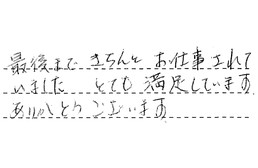 最後まできちんとお仕事されて
いました とても満足しています
ありがとうございます